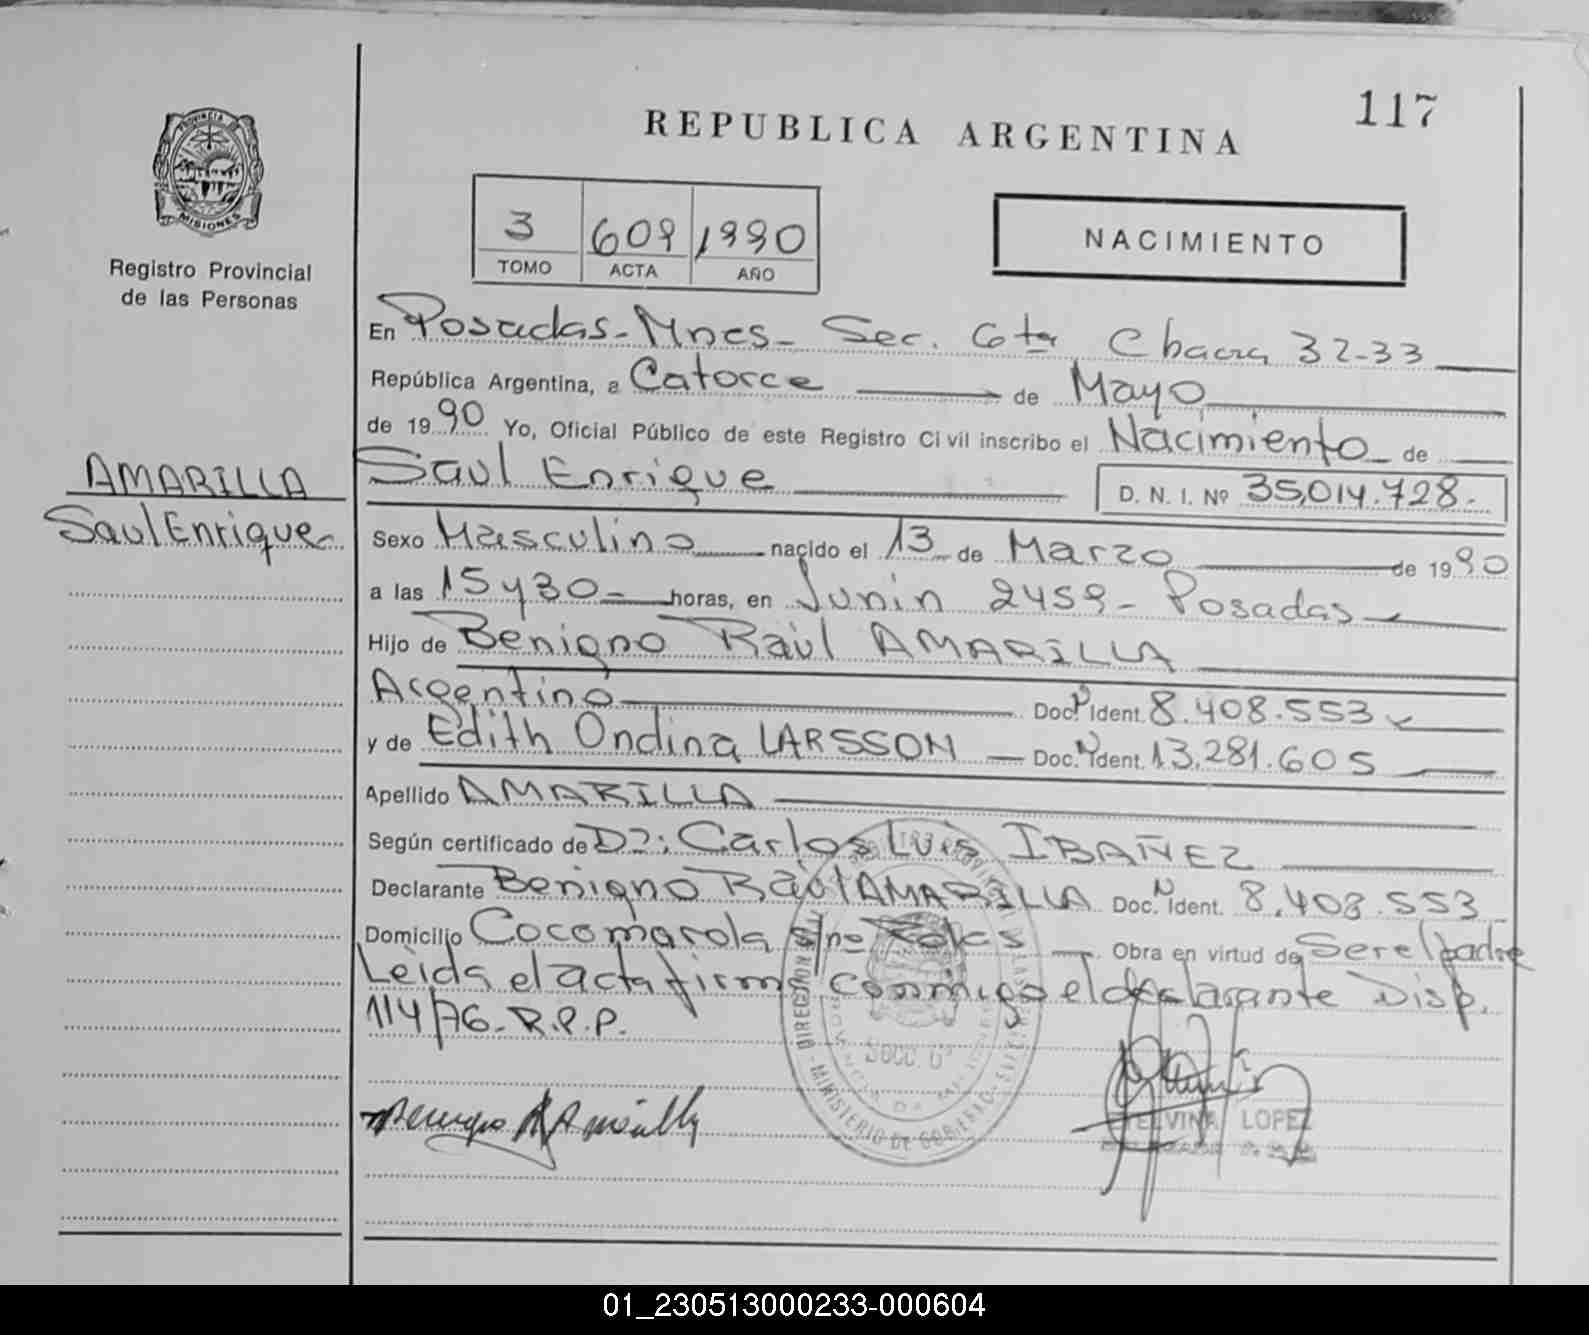 117
REPUBLICA ARGENTINA
PROVINCIA DE
MISIONES
Registro Provincial
de las Personas
3 609 1990
TOMO ACTA AÑO
NACIMIENTO
En Posadas - Mnes - Sec. 6ta Chacra 32-33
República Argentina, a Catorce de Mayo
de 1990 Yo, Oficial Público de este Registro Civil inscribo el Nacimiento de
AMARILLA
Saul Enrique
Saul Enrique D. N. I. Nº 35,014.728.
Sexo Masculino nacido el 13 de Marzo de 1990
a las 15 y 30 - horas, en Junin 2459 - Posadas
Hijo de Benigno Raúl AMARILLA
Argentino Doc. Ident. 8.408.553
y de Edith Ondina LARSSON Doc. Ident. 13.281.605
Apellido AMARILLA
Según certificado de Dr: Carlos Luis IBAÑEZ
Declarante Benigno Raúl AMARILLA Doc. Ident. 8.408.553
Domicilio Cocomarola s/nº Obra en virtud de Ser el padre
Leida el acta firma conmigo el declarante Disp.
114/76 - R.P.P.
MINISTERIO DE GOBIERNO
SECC. 6ª
LOPEZ
01_230513000233-000604